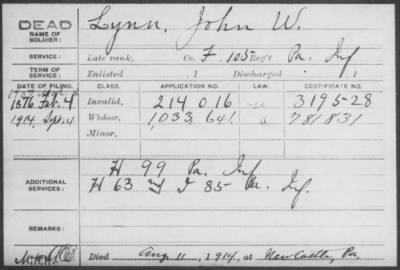 DEAD
NAME OF SOLDIER: Lynn, John W.
SERVICE: Late rank, Co. F. 105 Reg't Pa. Inf
TERM OF SERVICE: Enlisted , 1 Discharged , 1
DATE OF FILING. CLASS. APPLICATION NO. LAW. CERTIFICATE NO.
1876 Feb. 4 Invalid, 214016 3195-28
1914, Sept. 4 Widow, 1033,641 781831
Minor,
ADDITIONAL SERVICES: H 99 Pa. Inf
H 63 and I 85 Pa. Inf.
REMARKS:
Died Aug 11, 1914, at New Castle, Pa.